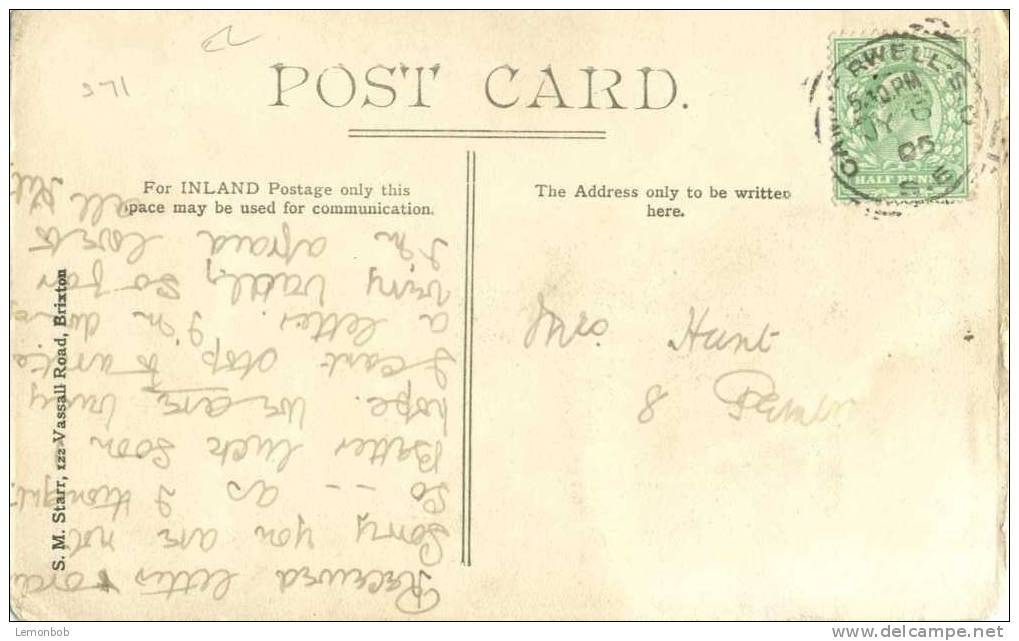 571
POST CARD.
For INLAND Postage only this
space may be used for communication.
The Address only to be written
here.
CAMBERWELL S.O.
5.30 PM
JY
05
S.E
HALF PENNY
Mrs. Hunt
8
S. M. Starr, 122 Vassall Road, Brixton
Received letter
Sorry you are not
so -- as I thought.
Better luck soon
hope. We are very
I cant stop to write
a letter. I'm
very badly so far
I'm afraid love to
all
Lemonbob
delcampe.net